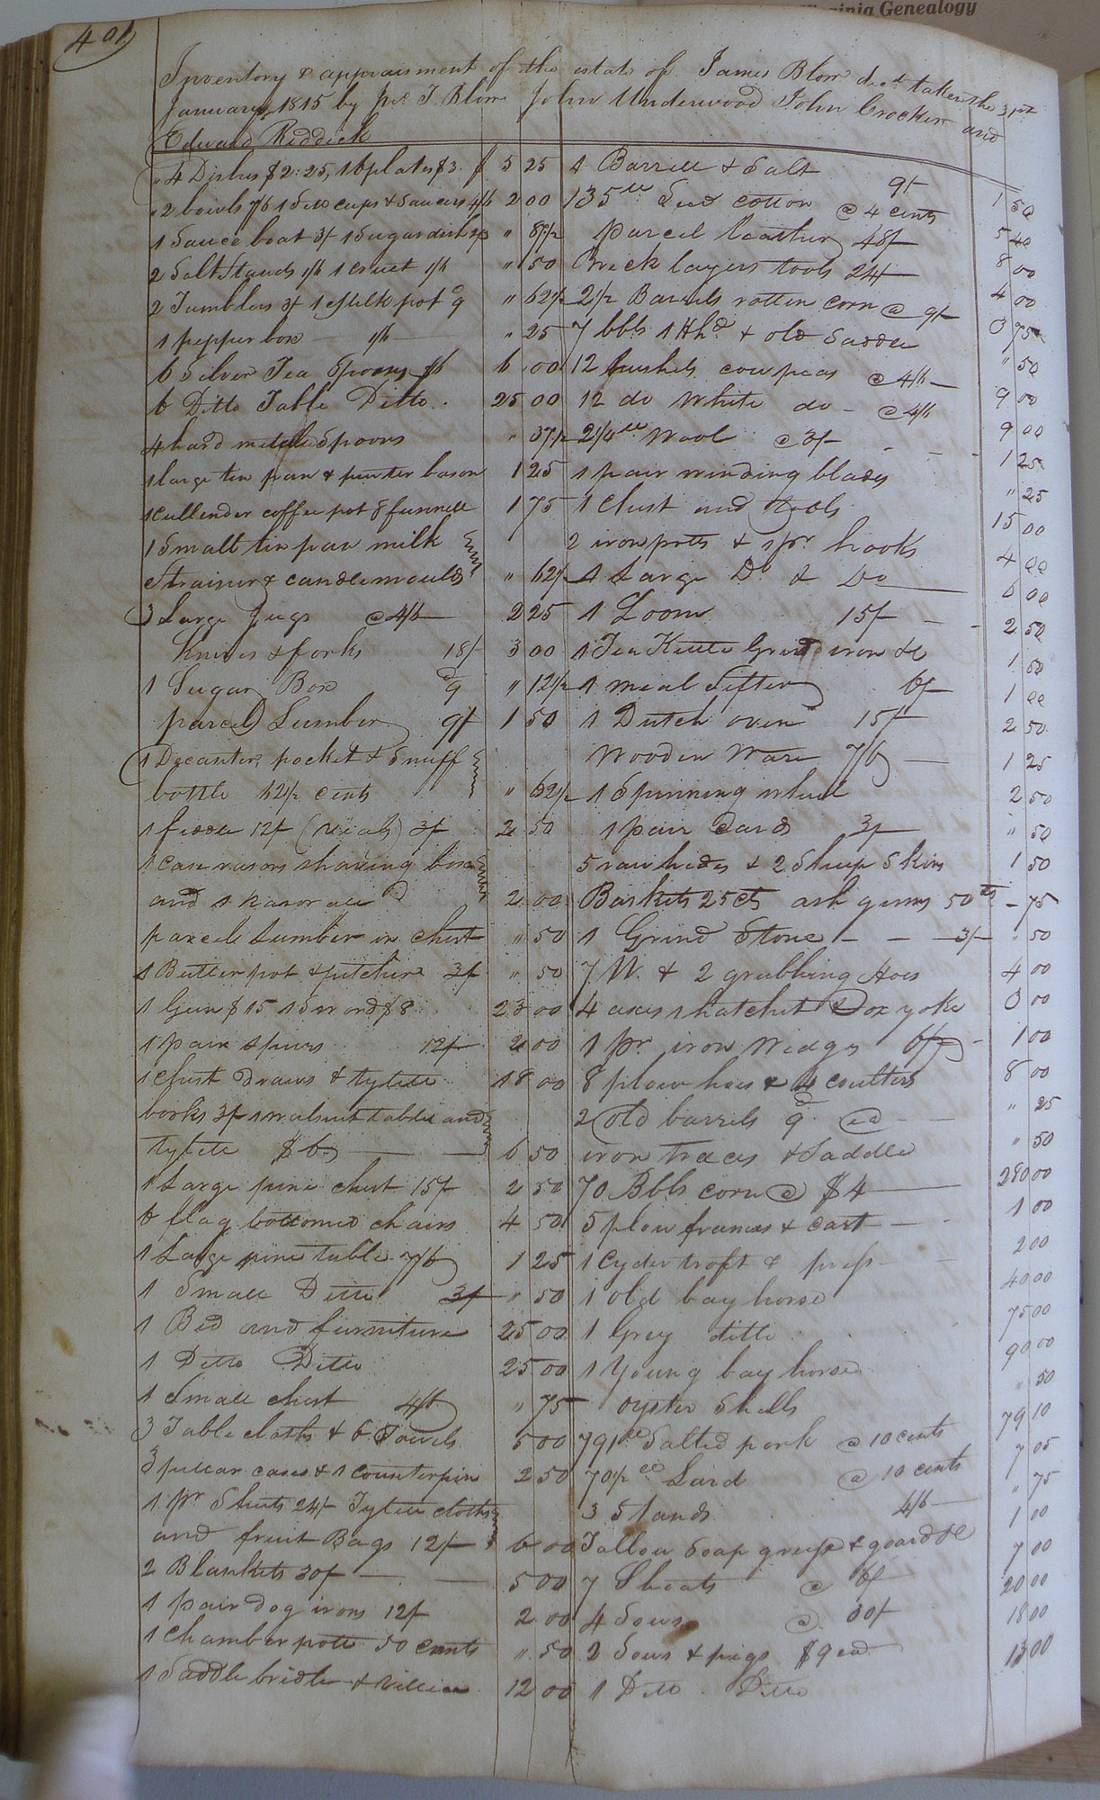 Virginia Genealogy
401
Inventory & appraisment of the estate of James Blow decd taken the 31st
January 1815 by T. Blow John Underwood John Crocker and
Edward Riddick
4 Dishes $2:25, 16 plates $3. $ 5 25
2 bowls 7/6 1 Sett cups & Saucers 4/6 2 00
1 Sauce boat 3/ 1 Sugar dish " 87 1/2
2 Salt Stands 1/6 1 cruet 1/6 " 50
2 Tumblers 3/ 1 Milk pot 9d " 62 1/2
1 pepper box 1/6 " 25
6 Silver Tea Spoons 6 00
6 Ditto Table Ditto. 25 00
4 hard mettle Spoons " 37 1/2
1 large tin pan & pewter bason 1 25
1 Cullender coffee pot & funnell 1 75
1 Small tin pan milk
Strainer & candlemoulds " 62 1/2
3 Large Jugs @ 4/6 2 25
Knives & forks 18/ 3 00
1 Sugar Box 9d " 12 1/2
parcel Lumber 9/ 1 50
1 Decanter, pocket & Snuff
bottle 62 1/2 cents " 62 1/2
1 12/ 3/ 2 50
1 case rasors shaving box
and 1 2 00
parcele Lumber in chest " 50
1 Butter pot & pitcher 3/ " 50
1 Gun $15 1 Sword $8 23 00
1 pair Spurs 12/ 2 00
1 Chest Draws & 18 00
books 3/ 1 walnut table and
$6 6 50
1 Large pine chest 15/ 2 50
6 flag bottomed chairs 4 50
1 Large pine table 7/6 1 25
1 Small Ditto 3/ " 50
1 Bed and furniture 25 00
1 Ditto Ditto 25 00
1 Small chest 4/6 " 75
3 Table cloths & 6 Towels 5 00
3 pillar cases & 1 counterpin 2 50
1 pr Sheets 24/ cloths
and fruit Bags 12/ 6 00
2 Blankets 30/ 5 00
1 pair dog irons 12/ 2 00
1 Chamber pott 50 cents " 50
1 Saddle bridle & 12 00
1 Barrell & Salt 9/ 1 50
135 lb Seed cotton @ 4 cents 5 40
parcel leather 48/ 8 00
Brick layers tools 24/ 4 00
2 1/2 Barrels rotten corn @ 9/ 3 75
7 bbls 1 Hhd & old Saddle " 50
12 bushels cow peas @ 4/6 9 00
12 do White do @ 4/6 9 00
2 1/4 lb Wool @ 3/ 1 25
1 pair winding blades " 25
1 Chest and tools 15 00
2 iron potts & 1 pr hooks 4 00
1 Large Do & Do 6 00
1 Loom 15/ 2 50
1 Tea Kettle Grid iron &c 1 50
1 meal Sifter 6/ 1 00
1 Dutch oven 15/ 2 50
Wooden Ware 7/6 1 25
1 Spinning wheel 2 50
1 pair Cards 3/ " 50
5 raw hides & 2 Sheep Skins 1 50
Baskets 25 cts 50 cts 75
1 Grind Stone 3/ " 50
7 W. & 2 grubbing Hoes 4 00
4 axes 1 hatchet & ox yoke 3 00
1 pr. iron Wedges 6/ 1 00
8 plow hoes & 4 coulters 8 00
2 old barrels 9d ea " 25
iron traces & Saddle " 50
70 Bbls corn @ $4 280 00
5 plow frames & cart 1 00
1 Cyder troft & press 2 00
1 old bay horse 40 00
1 Grey ditto 75 00
1 Young bay horse 90 00
oyster Shells " 50
791 lb Salted pork @ 10 cents 79 10
70 1/2 lb Lard @ 10 cents 7 05
3 Stands 4/6 " 75
Tallow Soap grease & goard &c 1 00
7 Shoats @ 6/ 7 00
4 Sows @ 30/ 20 00
2 Sows & pigs $9 ea 18 00
1 Ditto Ditto 13 00